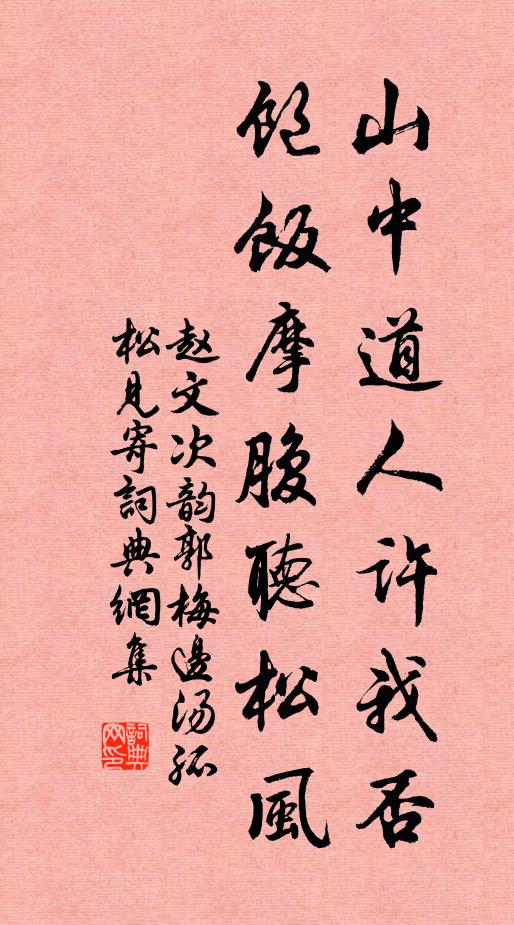 山中道人许我否
饱饭摩腹聽松風
赵文次韵郭梅邊汤孤
松见寄詞典網集
詞典網印